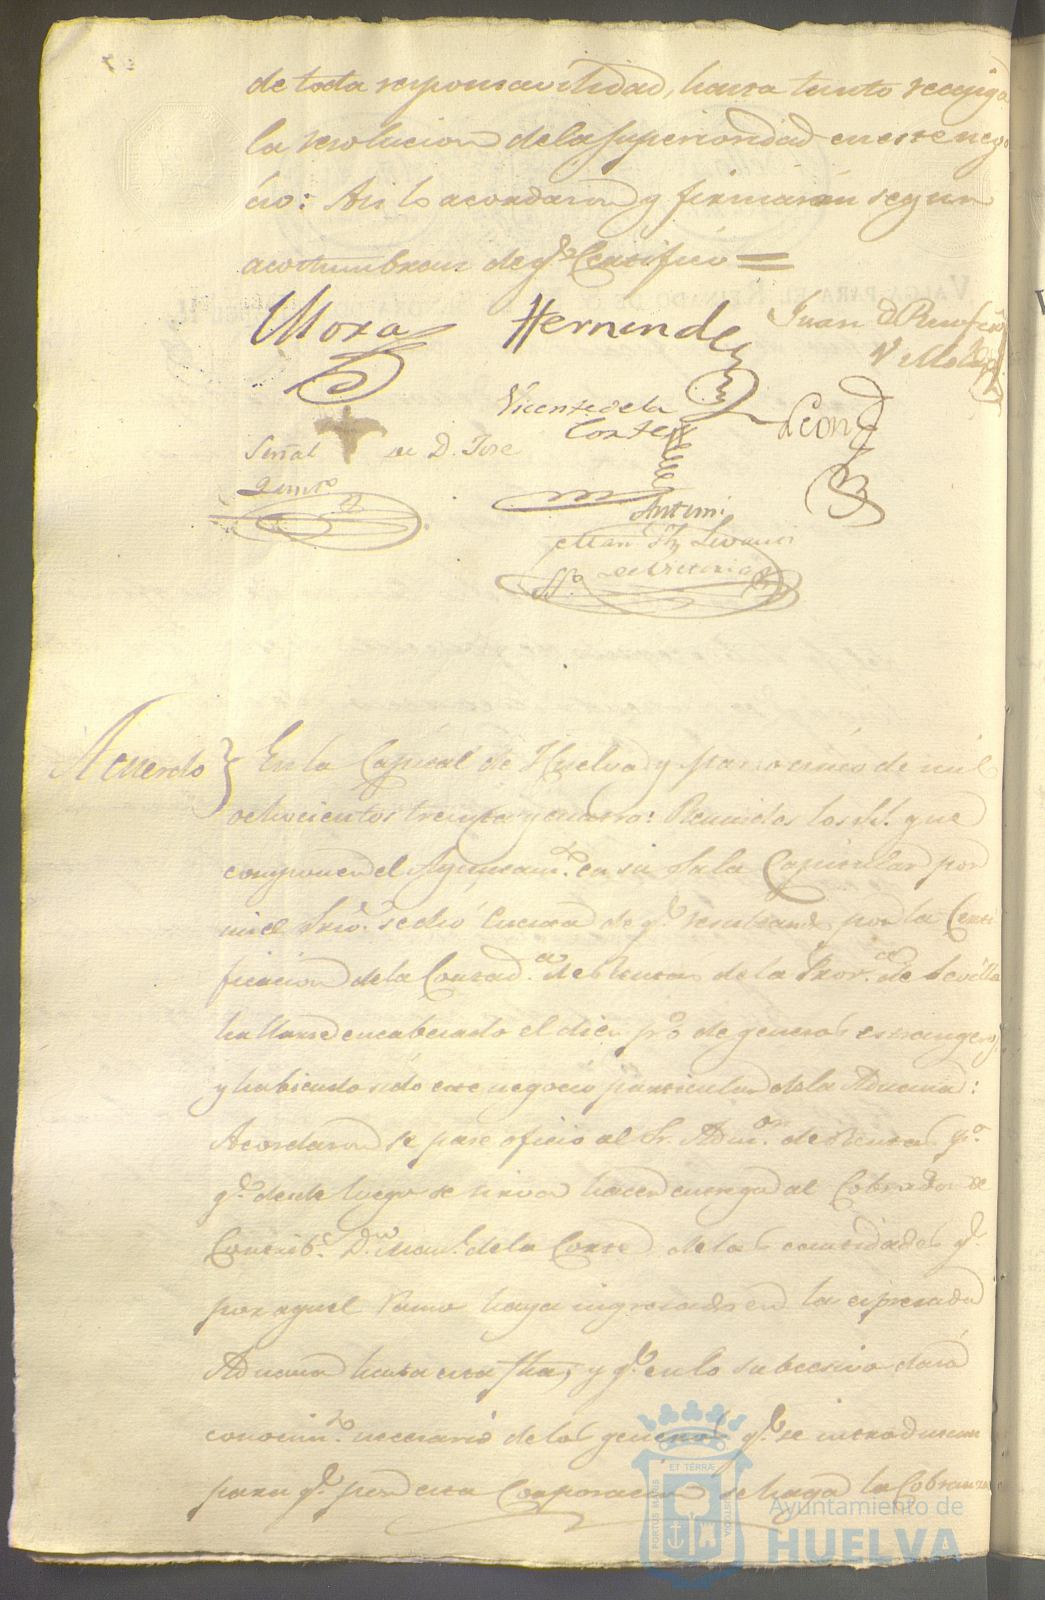 de toda responsavilidad, hasta tanto recayga
la resolucion de la Superioridad en este nego
cio: Asi lo acordaron y firmarán segun
acostumbran de q.e Certifico =
Mora Hernandez Juan
Vicente de la
Corte Leon
Señal de D. Jose
Quinto
Antemi
de Victoria
Acuerdo } En la Capital de Huelva y marzo cinco de mil
ochocientos treinta y cuatro: Reunidos los SS. que
componen el Ayuntam.to en su Sala Capitular por
mi el Srio. se dió cuenta de q.e resultando por la Certi
ficacion de la Contad.a de Rentas de la Prov.a de Sevilla
hallarse encabezado el diez p.r % de generos estrangeros
y habiendo sido este negocio particular de la Aduana:
Acordaron se pase oficio al Sr. Adm.or de Rentas p.a
q.e desde luego se sirva hacer entrega al Cobrador de
Contrib.s D.n Man.l de la Corte de las cantidades q.e
por aquel ramo haya ingresado en la expresada
Aduana hasta esta fha, y q.e en lo subcesivo dará
conocim.to necesario de los generos q.e se introduzcan
para q.e por esta Corporacion se haga la Cobranza
PORTUS MARIS ET TERRAE CUSTODIA
Ayuntamiento de
HUELVA